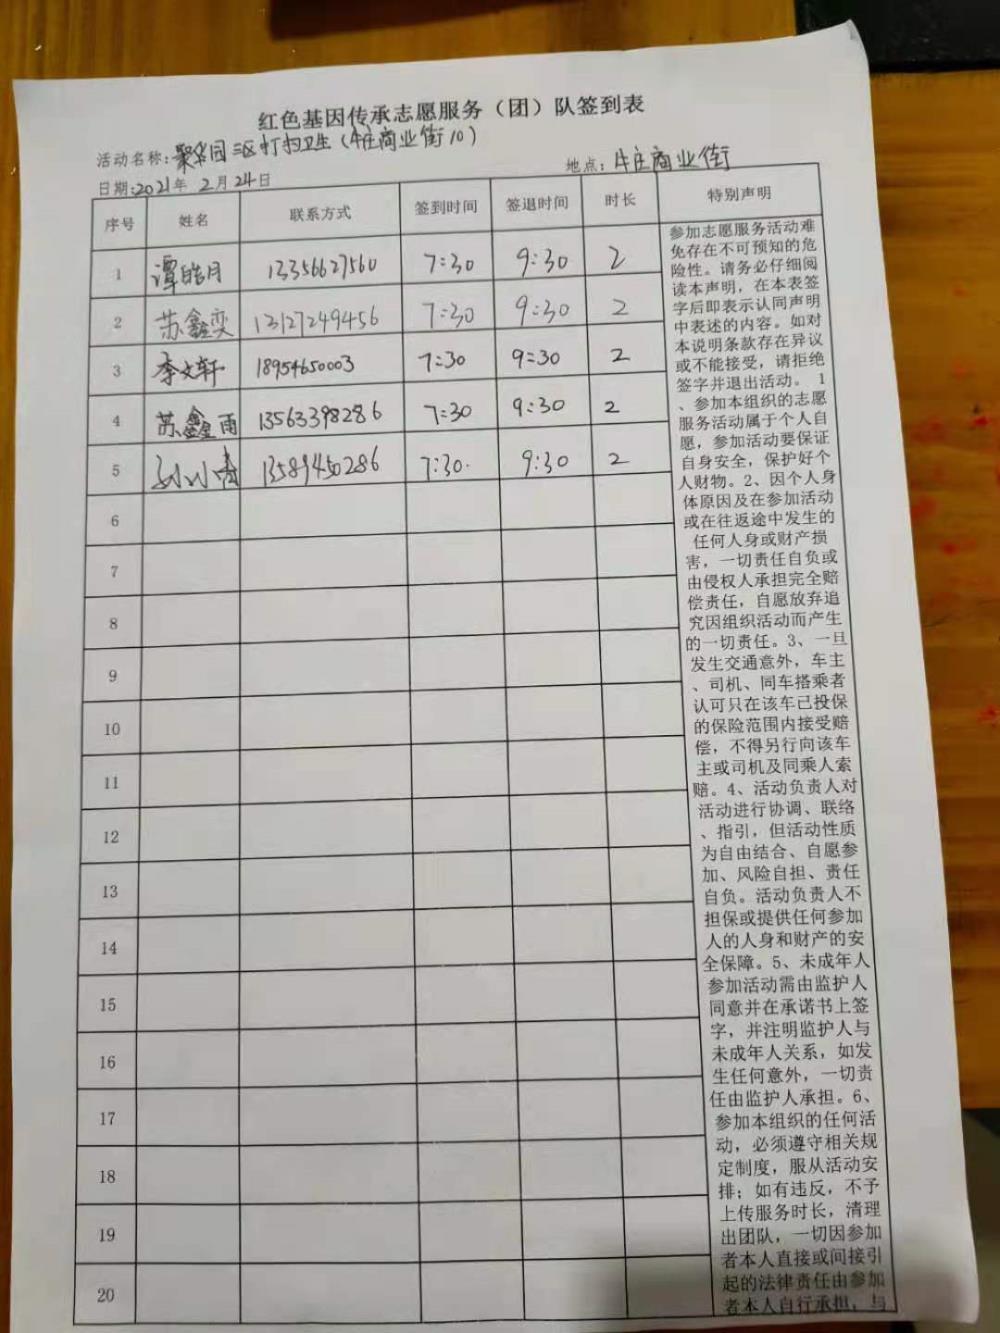 红色基因传承志愿服务（团）队签到表
活动名称：聚华园三区打扫卫生（牛庄商业街10）
地点：牛庄商业街
日期：2021年 2月 24日
序号 姓名 联系方式 签到时间 签退时间 时长 特别声明
1 谭皓月 13356627560 7:30 9:30 2
2 苏鑫奕 13127249456 7:30 9:30 2
3 李文轩 18954650003 7:30 9:30 2
4 苏鑫雨 13563398286 7:30 9:30 2
5 13589450286 7:30 9:30 2
6
7
8
9
10
11
12
13
14
15
16
17
18
19
20
参加志愿服务活动难
免存在不可预知的危
险性。请务必仔细阅
读本声明，在本表签
字后即表示认同声明
中表述的内容。如对
本说明条款存在异议
或不能接受，请拒绝
签字并退出活动。 1
、参加本组织的志愿
服务活动属于个人自
愿，参加活动要保证
自身安全，保护好个
人财物。2、因个人身
体原因及在参加活动
或在往返途中发生的
任何人身或财产损
害，一切责任自负或
由侵权人承担完全赔
偿责任，自愿放弃追
究因组织活动而产生
的一切责任。3、一旦
发生交通意外，车主
、司机、同车搭乘者
认可只在该车已投保
的保险范围内接受赔
偿，不得另行向该车
主或司机及同乘人索
赔。4、活动负责人对
活动进行协调、联络
、指引，但活动性质
为自由结合、自愿参
加、风险自担、责任
自负。活动负责人不
担保或提供任何参加
人的人身和财产的安
全保障。5、未成年人
参加活动需由监护人
同意并在承诺书上签
字，并注明监护人与
未成年人关系，如发
生任何意外，一切责
任由监护人承担。6、
参加本组织的任何活
动，必须遵守相关规
定制度，服从活动安
排；如有违反，不予
上传服务时长，清理
出团队，一切因参加
者本人直接或间接引
起的法律责任由参加
者本人自行承担，与